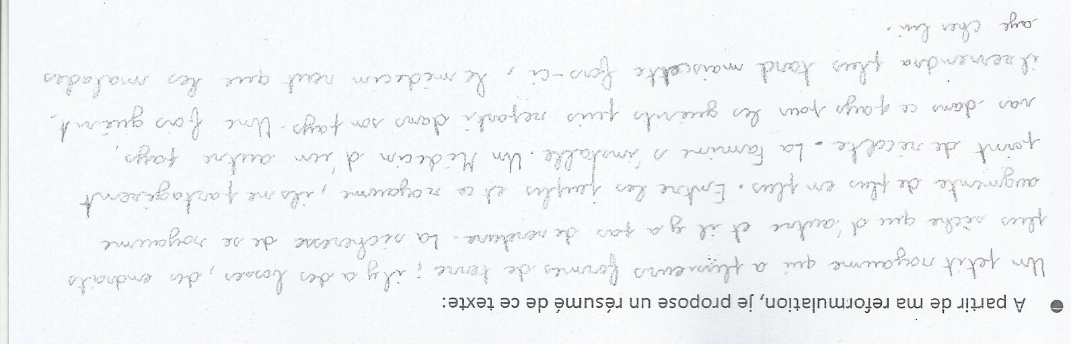 A partir de ma reformulation, je propose un résumé de ce texte:
Un petit royaume qui a plusieurs formes de terre ; il y a des bosses, des endroits
plus sèche que d'autre et il y a pas de verdure. La sécheresse de se royaume
augmente de plus en plus. Entre les peuples et ce royaume, ils ne partagèrent
point de récolte. La famine s'installe. Un Médecin d'un autre pays,
vas dans ce pays pour les guérirs puis reparti dans son pays. Une fois guérit,
il reviendra plus tard mais cette fois-ci, le médecin veut que les malades
aye cher lui.